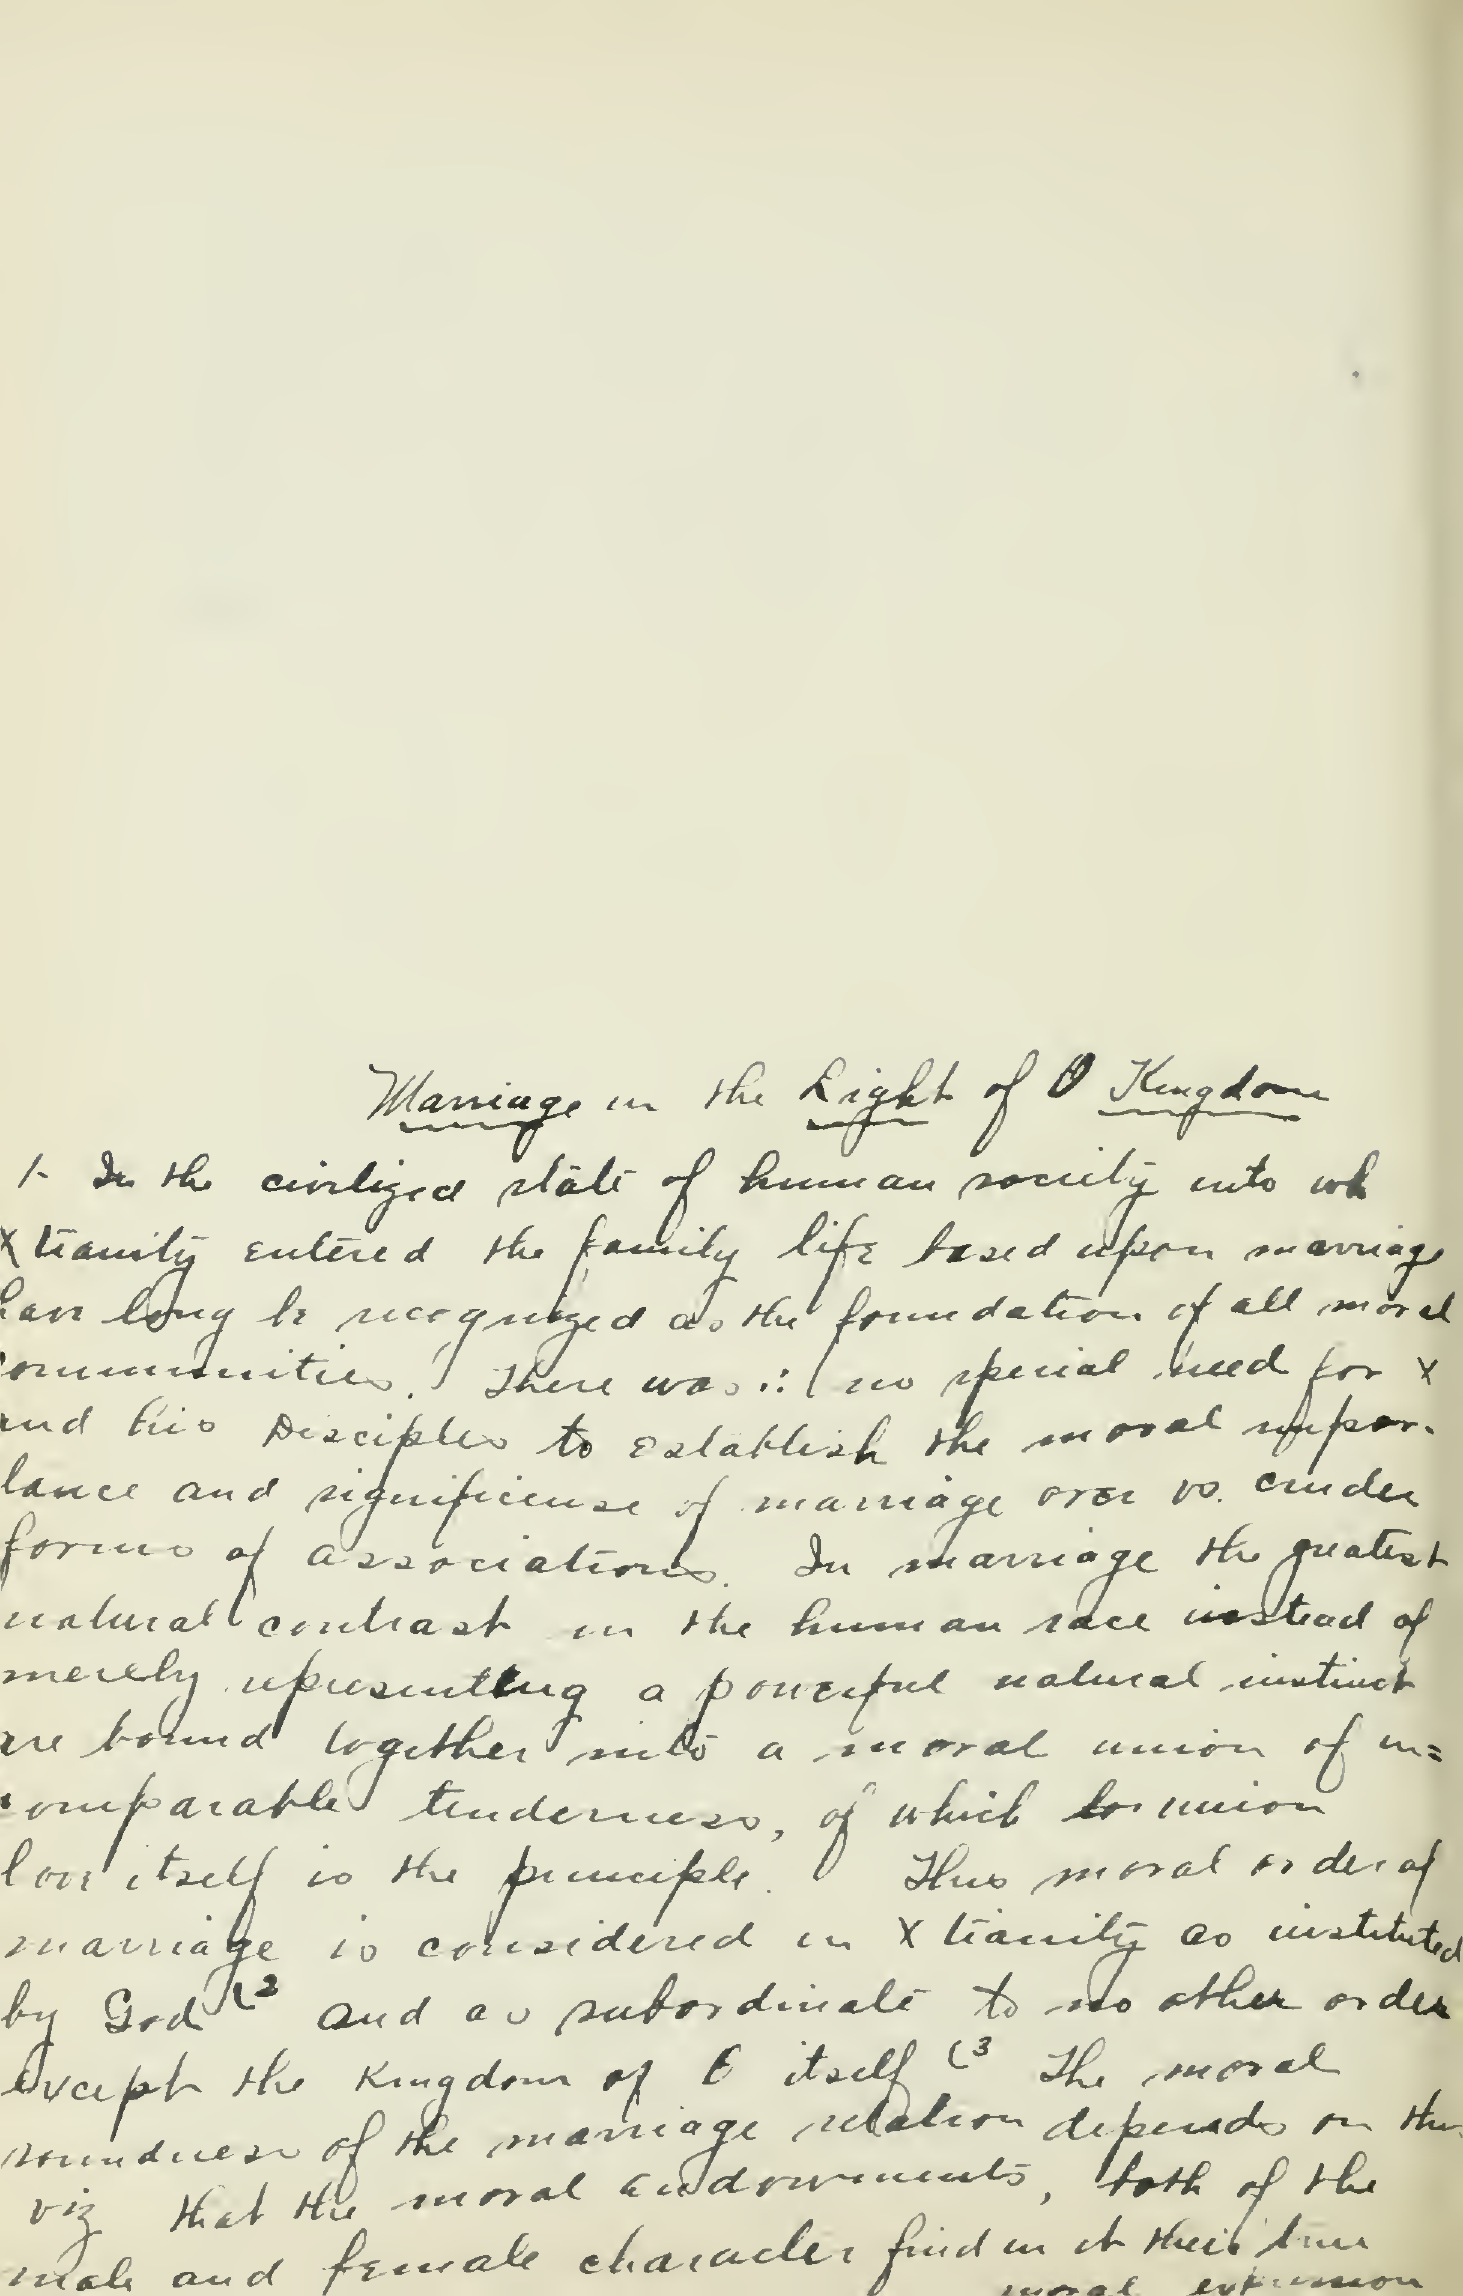 Marriage in the Light of θ Kingdom
1- In the civilized state of human society into wh
Xtianity entered the family life based upon marriage
have long be recognized as the foundation of all moral
communities. There was ∴ no special need for X
and his Disciples to establish the moral impor-
tance and significense of marriage over vs. cruder
forms of associations. In marriage the greatest
natural contrast in the human race instead of
merely representing a powerful natural instinct
are bound together into a moral union of in=
comparable tenderness, of which union
love itself is the principle. This moral order of
marriage is considered in Xtianity as instituted
by God (2 and as subordinate to no other order
except the Kingdom of θ itself (3 The moral
soundness of the marriage relation depends on this
viz that the moral endowments, both of the
male and female character find in it their true
moral expression